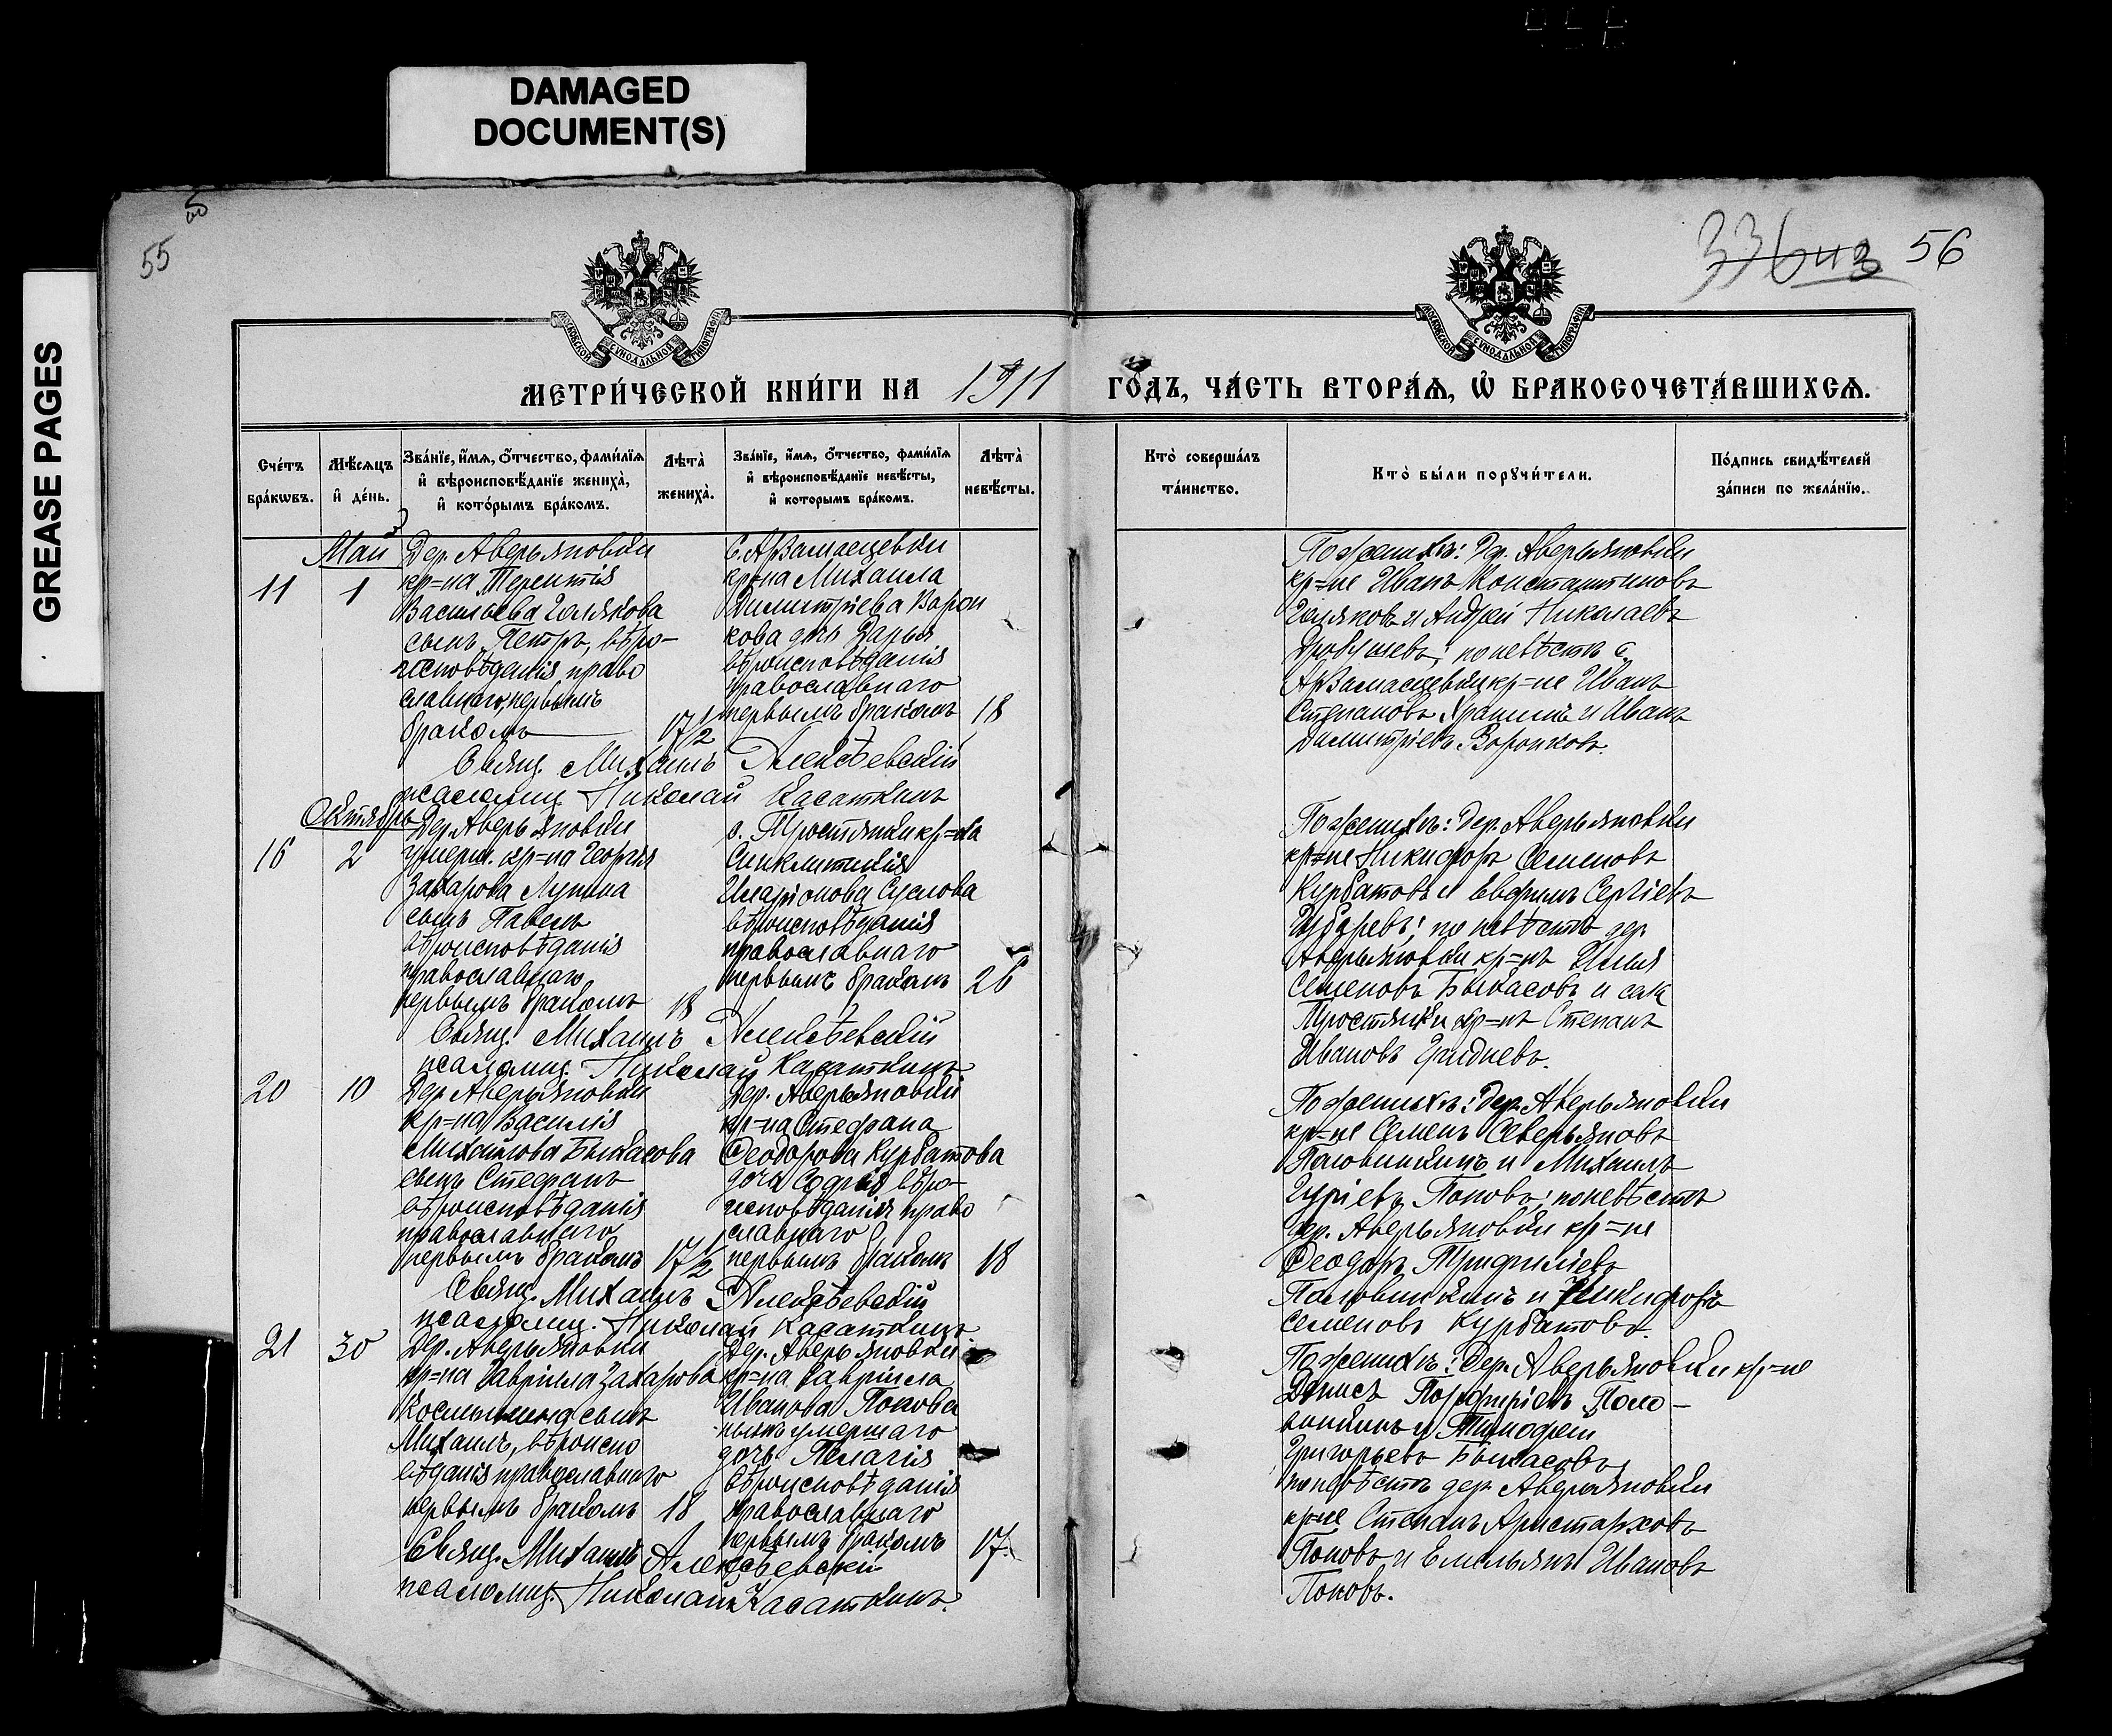 DAMAGED
DOCUMENT(S)
GREASE PAGES
55
56
МОСКОВСКОЙ СѴНОДАЛЬНОЙ ТИПОГРАФІИ
МОСКОВСКОЙ СѴНОДАЛЬНОЙ ТИПОГРАФІИ
МЕТРИ́ЧЕСКОЙ КНИ́ГИ НА 1911 ГО́ДЪ, ЧА́СТЬ ВТОРА́Ѧ, Ѽ БРАКОСОЧЕТА́ВШИХСѦ.
Сче́тъ бра́кѡвъ.
Мѣ́сѧцъ и҆ де́нь.
Зва́нїе, и҆́мѧ, ѻ҆́тчество, фами́лїѧ и҆ вѣроисповѣ́данїе жениха̀, и҆ кото́рымъ бра́комъ.
Лѣта̀ жениха̀.
Зва́нїе, и҆́мѧ, ѻ҆́тчество, фами́лїѧ и҆ вѣроисповѣ́данїе невѣ́сты, и҆ которымъ бра́комъ.
Лѣта̀ невѣ́сты.
Кто̀ соверша́лъ та́инство.
Кто̀ бы́ли порꙋчи́тели.
По́дпись свидѣ́телей за́писи по жела́нїю.
Май
11
1
Дер. Аверьяновки
кр=на Терентія
Васильева Гелякова
сынъ Петръ, вѣро-
исповѣданія право
славнаго, первымъ
бракомъ
17½
С. Арзамасцевки
кр=на Михаила
Димитріева Ворон
кова дочь Дарья
вѣроисповѣданія
православнаго
первымъ бракомъ
18
Свящ. Михаилъ Алексѣевскій
псаломщ. Николай Касаткинъ
По женихѣ: Др. Аверьяновки
кр=не Иванъ Константиновъ
Геляковъ и Андрей Николаевъ
по невѣстѣ с.
Арзамасцевки кр=не Иванъ
Степановъ и Иванъ
Димитріевъ Воронковъ.
Октябрь
16
2
Дер. Аверьяновки
умерш. кр=на Георгія
Захарова Лупина
сынъ Павелъ
вѣроисповѣданія
православнаго
первымъ бракомъ
18
с. Тростянки кр=ка
Синклитикія
Иларіонова Суслова
вѣроисповѣданія
православнаго
первымъ бракомъ
26
Свящ. Михаилъ Алексѣевскій
псаломщ. Николай Касаткинъ
По женихѣ: Дер. Аверьяновки
кр=не Никифоръ Семеновъ
Курбатовъ и Евфимъ Сергіевъ
по невѣстѣ дер.
Аверьяновки кр=нъ Илья
Семеновъ Быкасовъ и села
Тростянки кр=нъ Степанъ
Ивановъ Гридневъ.
20
10
Дер. Аверьяновки
кр=на Василія
Михайлова Быкасова
сынъ Стефанъ
вѣроисповѣданія
православнаго
первымъ бракомъ
17½
Дер. Аверьяновки
кр=на Стефана
Ѳеодорова Курбатова
дочь Софія вѣро-
исповѣданія право
славнаго
первымъ бракомъ
18
Свящ. Михаилъ Алексѣевскій
псаломщ. Николай Касаткинъ.
По женихѣ: Дер. Аверьяновки
кр=не Семенъ Северьяновъ
Половинкинъ и Михаилъ
Гуріевъ Поповъ; по невѣстѣ
дер. Аверьяновки кр=не
Ѳеодоръ Трифиліевъ
Половинкинъ и Никифоръ
Семеновъ Курбатовъ.
21
30
Дер. Аверьяновки
кр=на Гавріила Захарова
Космынина сынъ
Михаилъ, вѣроиспо
вѣданія православнаго
первымъ бракомъ
18
Дер. Аверьяновки
кр=на Гавріила
Иванова Попова
нынѣ умершаго
дочь Пелагія
вѣроисповѣданія
православнаго
первымъ бракомъ
17.
Свящ. Михаилъ Алексѣевскій
псаломщ. Николай Касаткинъ.
По женихѣ: Дер. Аверьяновки кр=не
Денисъ Порфиріевъ Поло-
винкинъ и Тимофей
Григорьевъ Быкасовъ
по невѣстѣ дер. Аверьяновки
кр=не Степанъ Аристарховъ
Поповъ и Емельянъ Ивановъ
Поповъ.